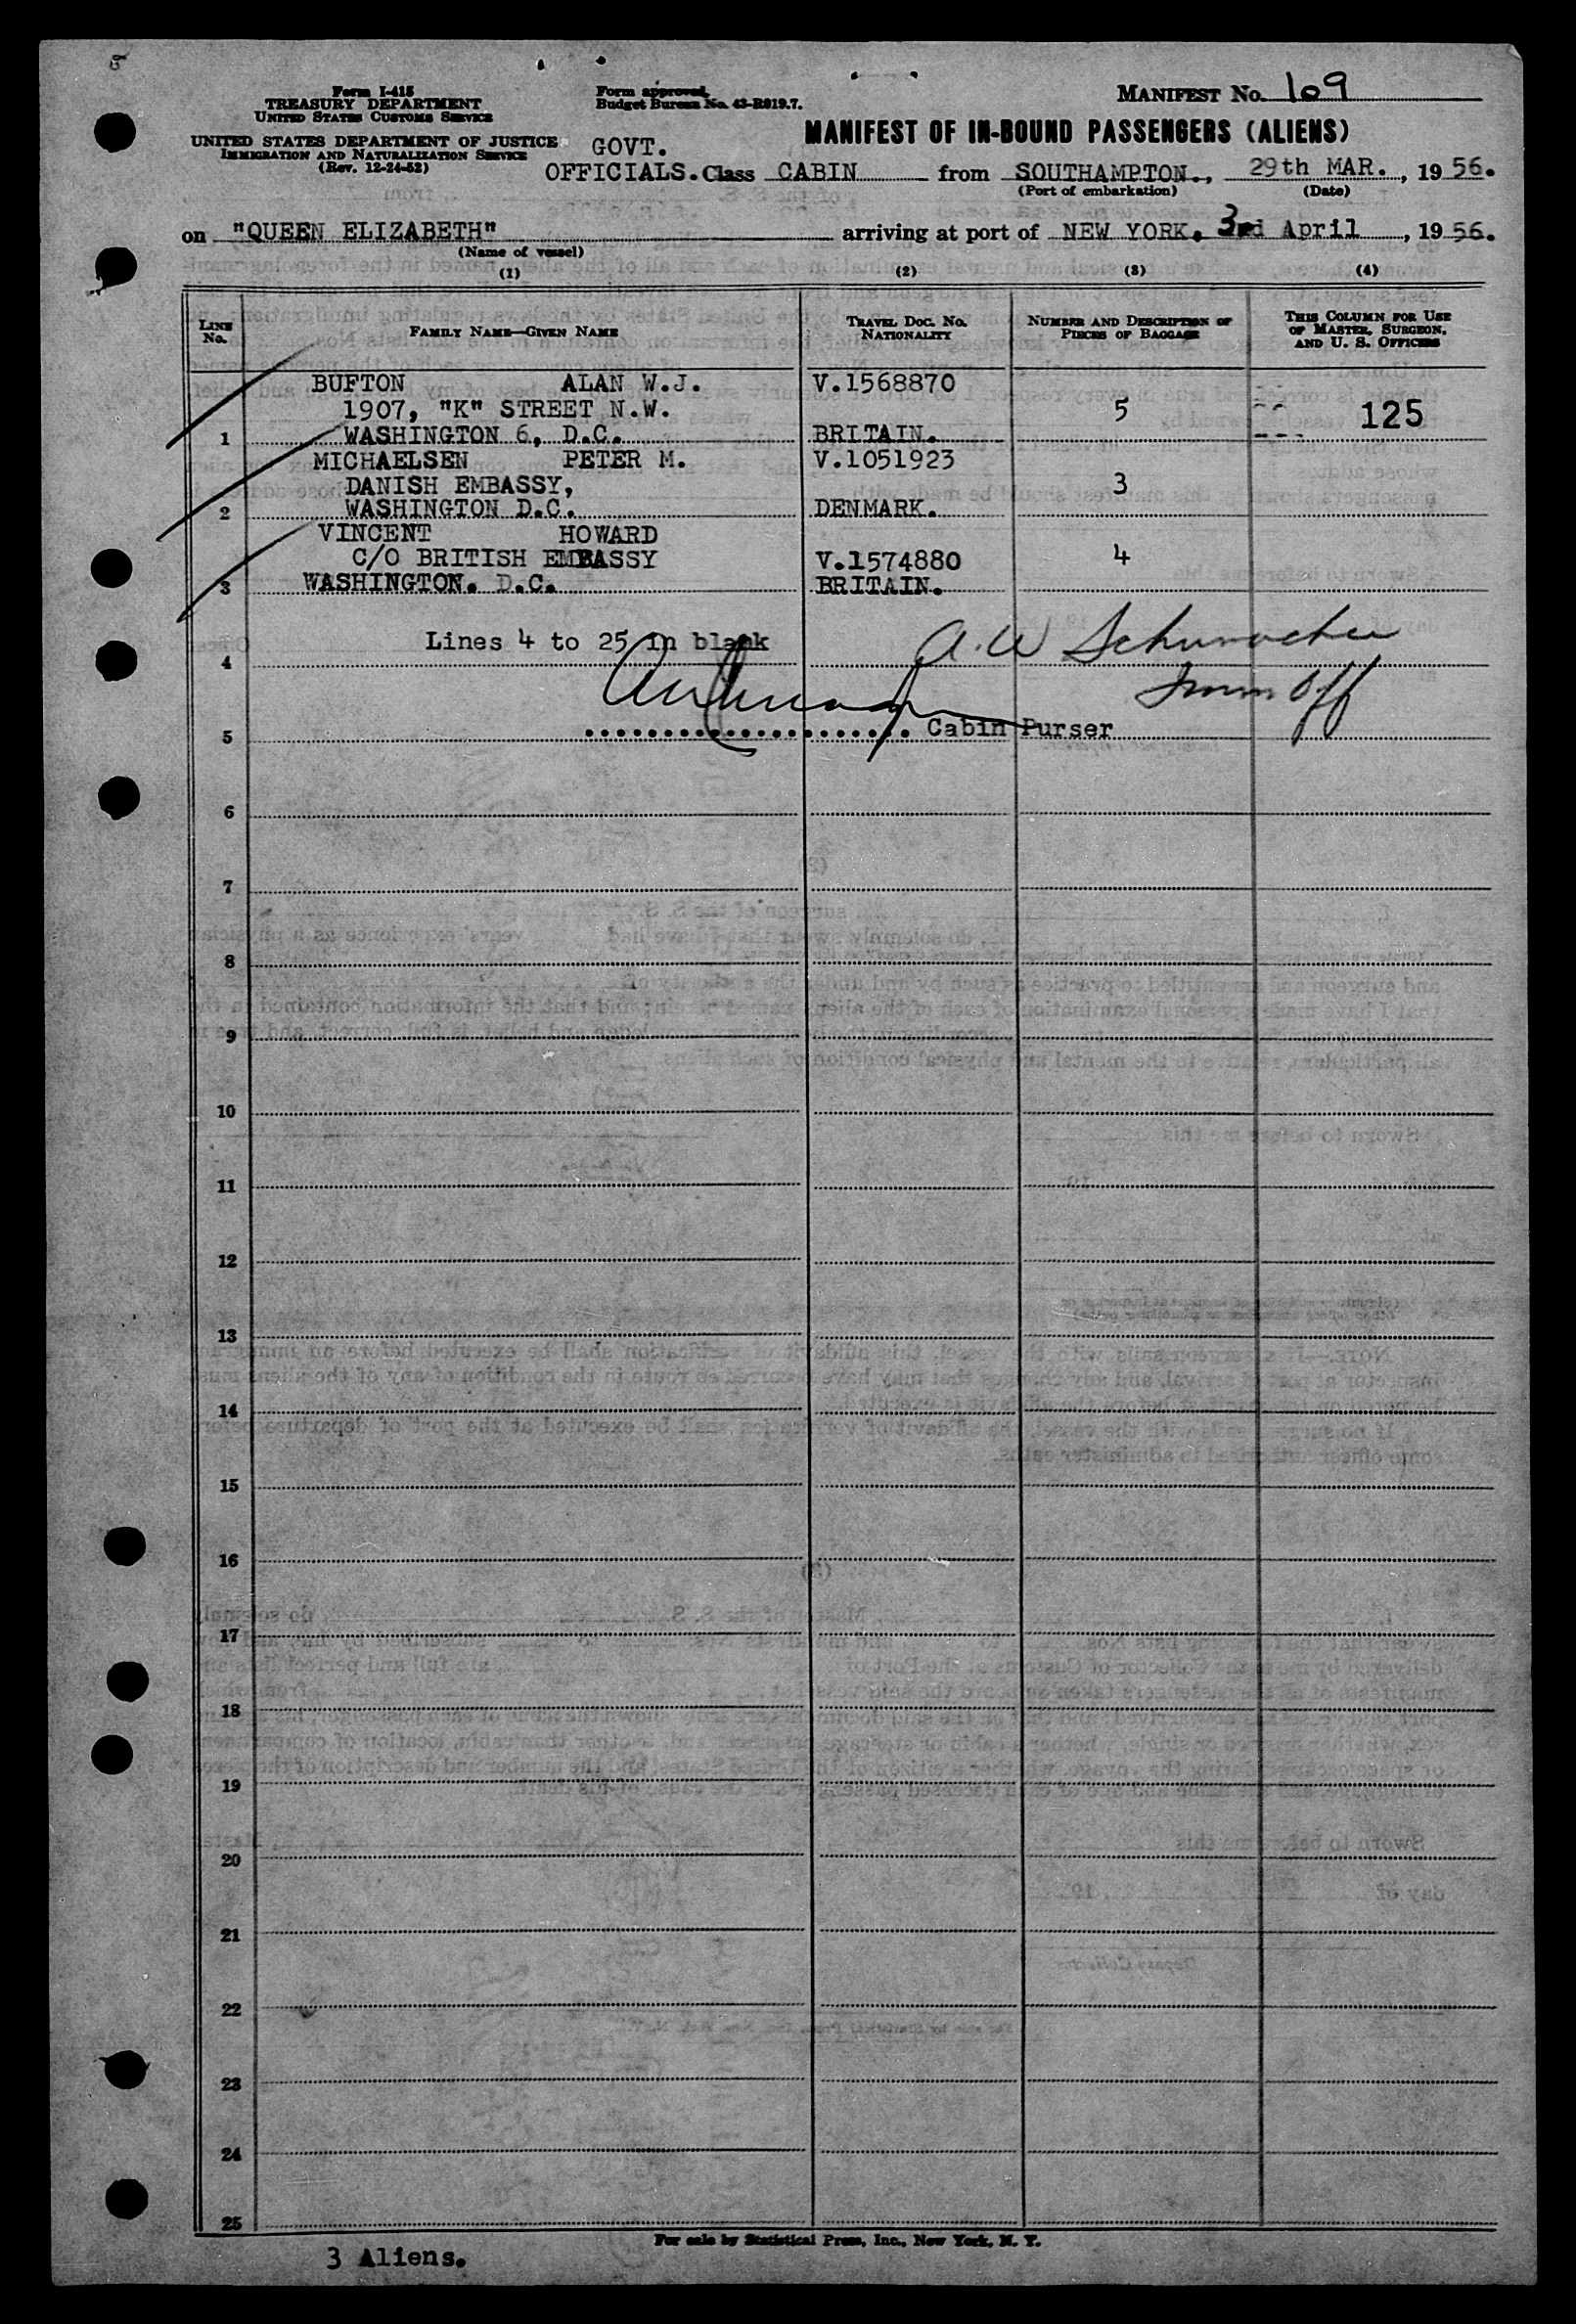 Form I-415
TREASURY DEPARTMENT
UNITED STATES CUSTOMS SERVICE
UNITED STATES DEPARTMENT OF JUSTICE
IMMIGRATION AND NATURALIZATION SERVICE
(Rev. 12-24-52)
Form approved.
Budget Bureau No. 43-R019.7.
MANIFEST No. 109
MANIFEST OF IN-BOUND PASSENGERS (ALIENS)
GOVT.
OFFICIALS. Class CABIN from SOUTHAMPTON., 29th MAR., 1956.
(Port of embarkation) (Date)
on "QUEEN ELIZABETH" arriving at port of NEW YORK. 3rd April, 1956.
(Name of vessel)
(1) (2) (3) (4)
LINE No. FAMILY NAME—GIVEN NAME TRAVEL DOC. No. NATIONALITY NUMBER AND DESCRIPTION OF PIECES OF BAGGAGE THIS COLUMN FOR USE OF MASTER, SURGEON, AND U. S. OFFICERS
BUFTON ALAN W.J. V.1568870
1907, "K" STREET N.W. 5 125
1 WASHINGTON 6, D.C. BRITAIN.
MICHAELSEN PETER M. V.1051923
DANISH EMBASSY, 3
2 WASHINGTON D.C. DENMARK.
VINCENT HOWARD
C/O BRITISH EMBASSY V.1574880 4
3 WASHINGTON. D.C. BRITAIN.
Lines 4 to 25 in blank A. W Schumacher
4
Imm Off
5 Cabin Purser
6
7
8
9
10
11
12
13
14
15
16
17
18
19
20
21
22
23
24
25
For sale by Statistical Press, Inc., New York, N. Y.
3 Aliens.